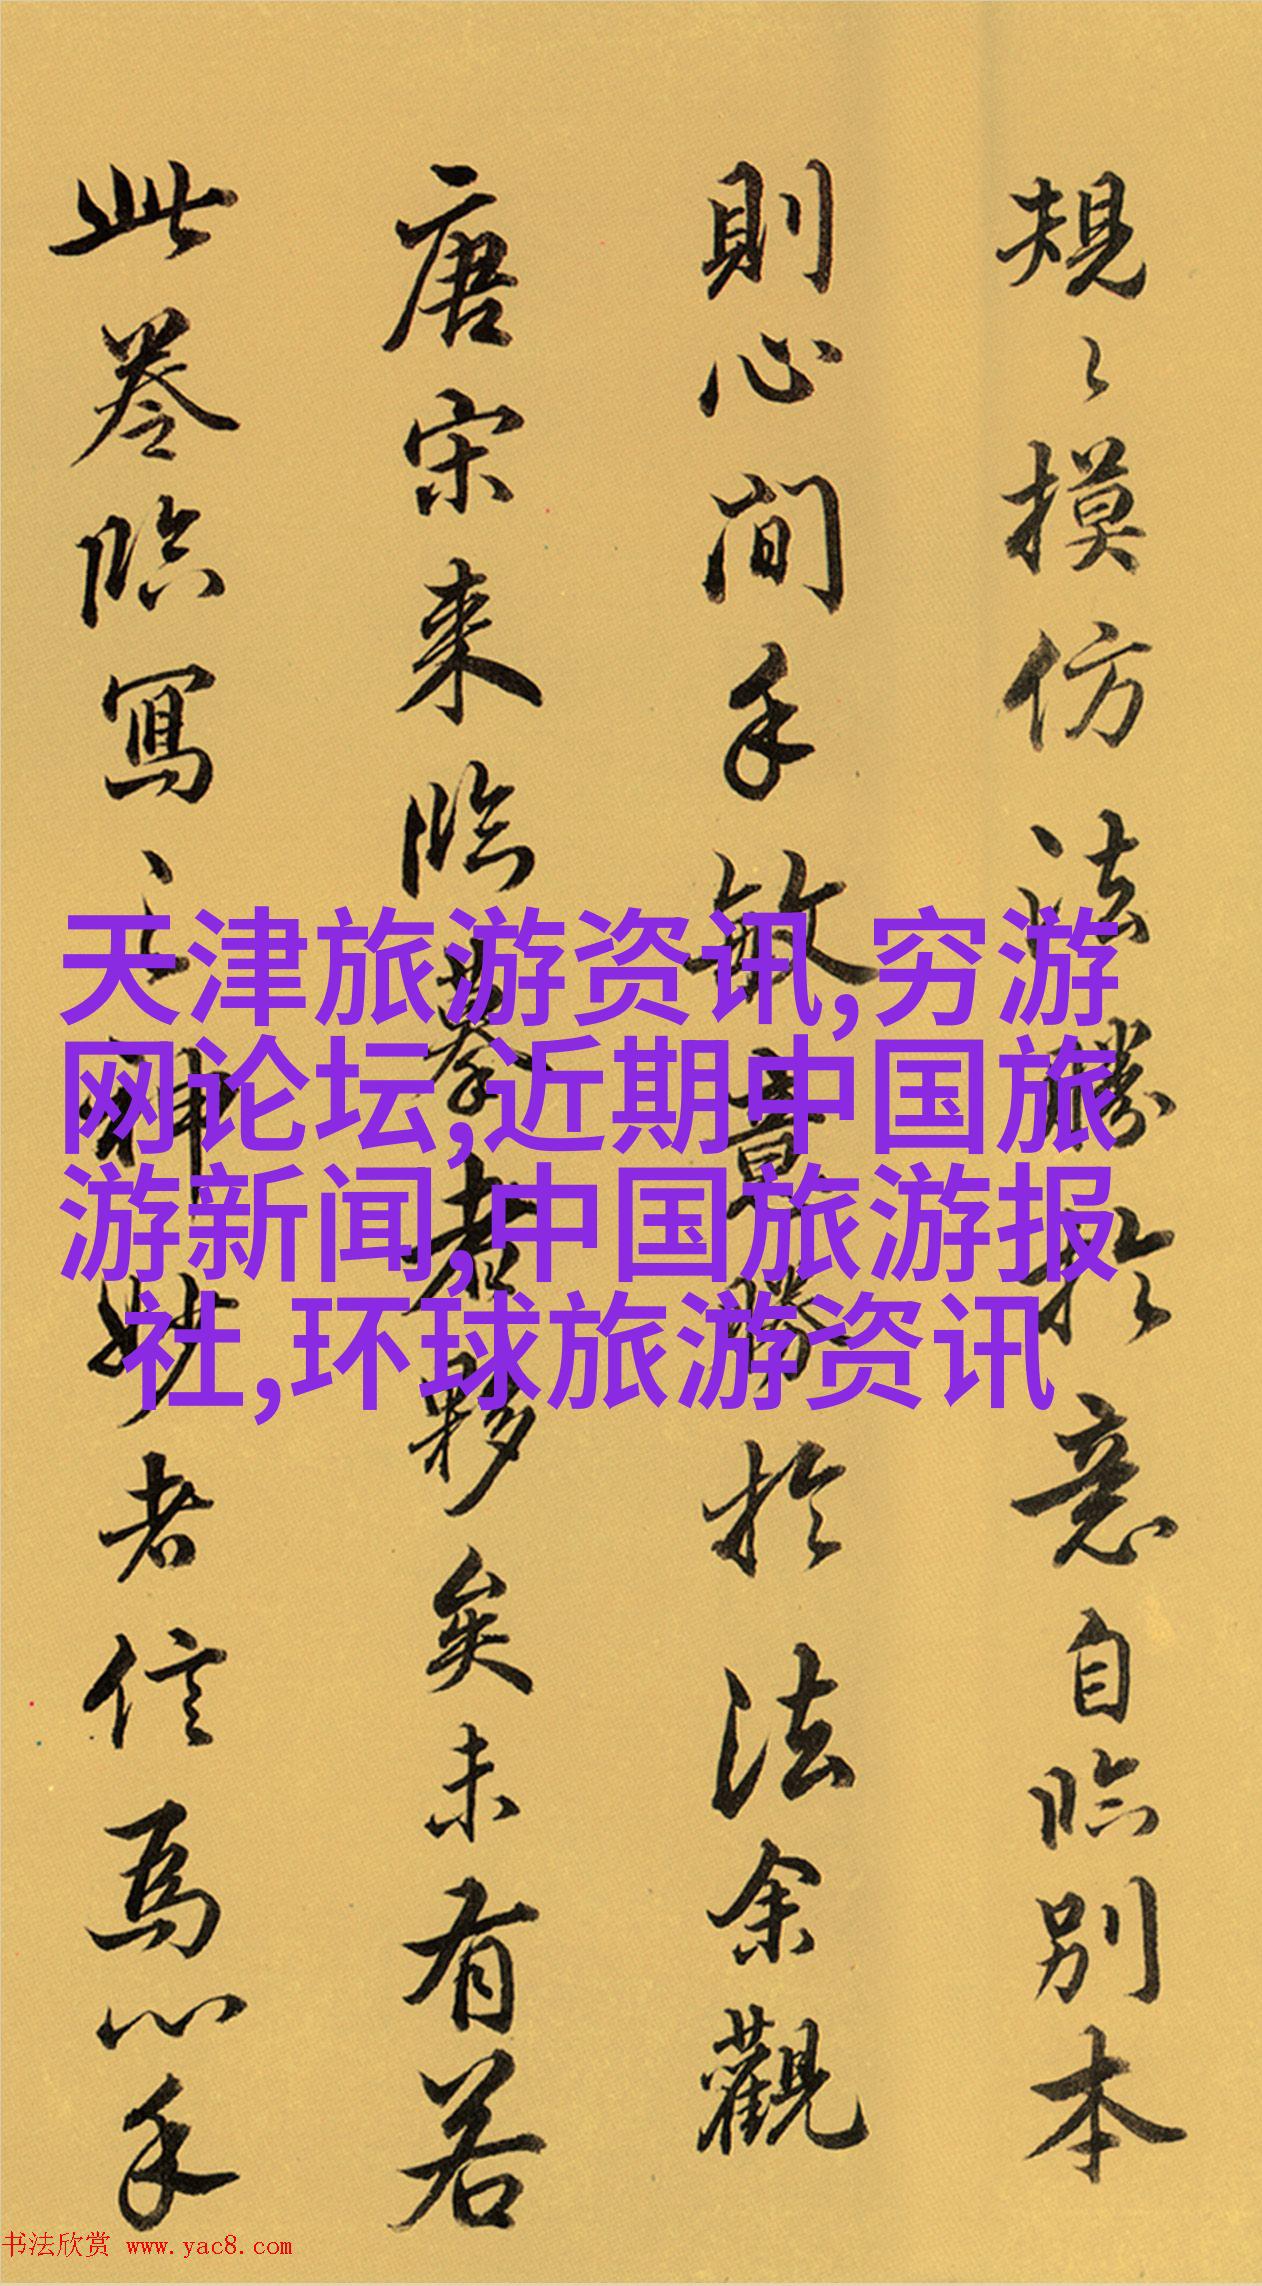 規〻摸仿法勝於意自臨別本
則心閒手敏意勝於法余觀
唐宋来臨摹者夥矣未有若
此卷臨寫之神妙者信爲心手
天津旅游资讯,穷游
网论坛,近期中国旅
游新闻,中国旅游报
社,环球旅游资讯
书法欣赏 www.yac8.com